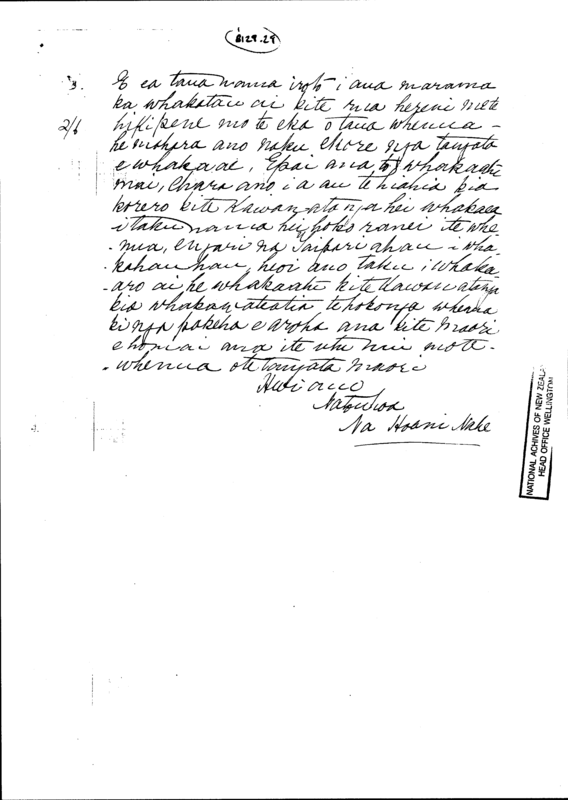 B129.29
3.
2/6
E ea taua nama i roto i aua marama
ka whakatau ai kite rua hereni me te
hikipene mo te eka o taua whenua -
he mohara ano naku ekore nga tangata
e whakaae, Epai ana to whakaatu
mai, Ehara ano i a au te hiahia kia
korero kite Kawanatanga hei whakaea
i taku nama hei hoko ranei ite whe
-nua, engari na Taipari ahau i wha
kahau hau, heoi ano taku i whaka-
aro ai he whakaatu kite Kawanatanga
kia whakawateatia te hokonga whenua
ki nga pakeha e aroha ana kite Maori
e homai ana ite utu nui mo te
-whenua ote tangata Maori
Heoi ano
Na to hoa
Na Hoani Nahe
NATIONAL ACHIVES OF NEW ZEALA
HEAD OFFICE WELLINGTON